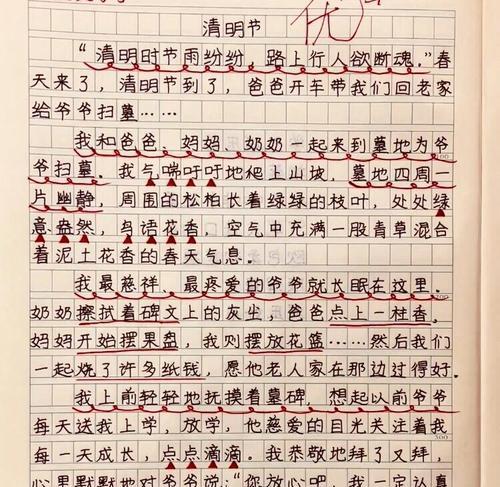 优
清明节
“清明时节雨纷纷，路上行人欲断魂。”春
天来了，清明节到了，爸爸开车带我们回老家
给爷爷扫墓……
我和爸爸、妈妈、奶奶一起来到墓地为爷
爷扫墓。我气喘吁吁地爬上山坡，墓地四周一
片幽静，周围的松柏长着绿绿的枝叶，处处绿
意盎然，鸟语花香，空气中充满一股青草混合
着泥土花香的春天气息。
我最慈祥、最疼爱的爷爷就长眠在这里。
奶奶擦拭着碑文上的灰尘，爸爸点上一柱香。
妈妈开始摆果盘，我则摆放花篮……然后我们
一起烧了许多纸钱，愿他老人家在那边过得好。
我上前轻轻地抚摸着墓碑，想起以前爷爷
每天送我上学，放学，他慈爱的目光关注着我
每一天成长，点点滴滴。我恭敬地拜了又拜，
心里默默地对爷爷说：“你放心吧，我一定认真